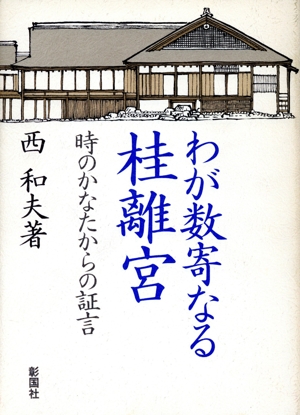 わが数寄なる
桂離宮
時のかなたからの証言
西 和夫著
彰国社